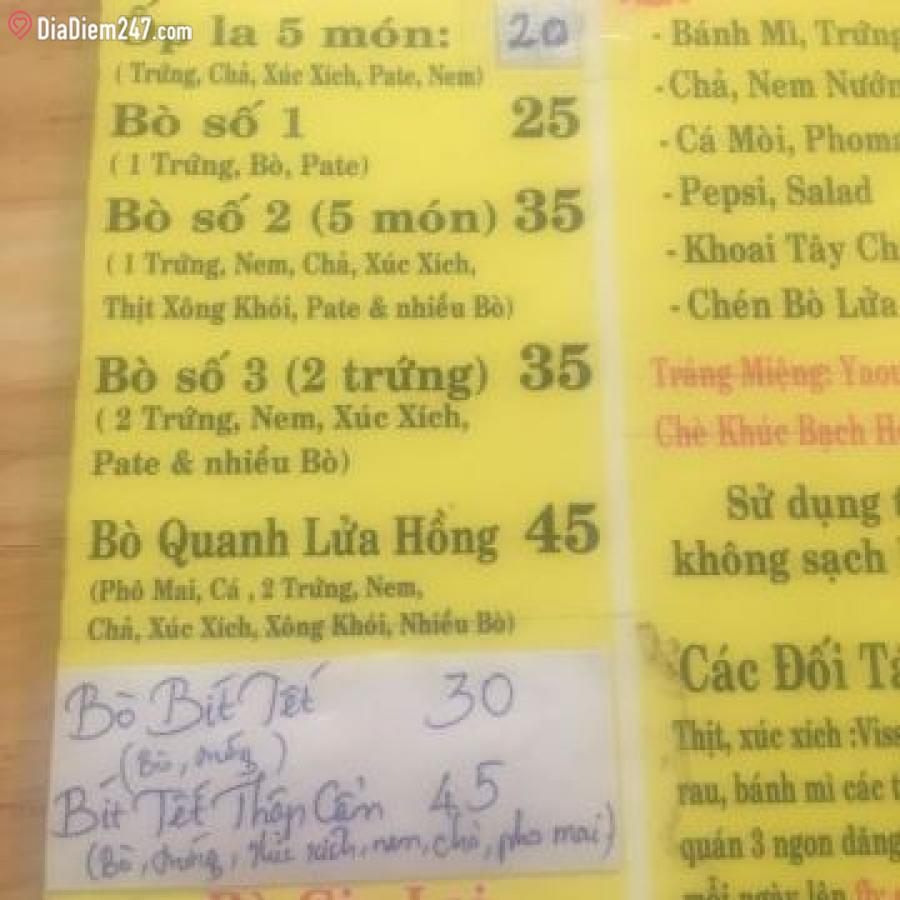 DiaDiem247.com
Ốp la 5 món: 20
( Trứng, Chả, Xúc Xích, Pate, Nem)
Bò số 1 25
( 1 Trứng, Bò, Pate)
Bò số 2 (5 món) 35
( 1 Trứng, Nem, Chả, Xúc Xích,
Thịt Xông Khói, Pate & nhiều Bò)
Bò số 3 (2 trứng) 35
( 2 Trứng, Nem, Xúc Xích,
Pate & nhiều Bò)
Bò Quanh Lửa Hồng 45
(Phô Mai, Cá , 2 Trứng, Nem,
Chả, Xúc Xích, Xông Khói, Nhiều Bò)
Bò Bít Tết 30
(Bò, trứng)
Bít Tết Thập Cẩm 45
(Bò, trứng, xúc xích, nem, chả, pho mai)
- Bánh Mì, Trứng
- Chả, Nem Nướn
- Cá Mòi, Phoma
- Pepsi, Salad
- Khoai Tây Ch
- Chén Bò Lửa
Tráng Miệng: Yaou
Chè Khúc Bạch H
Sử dụng t
không sạch
Các Đối Tá
Thịt, xúc xích :Viss
rau, bánh mì các t
quán 3 ngon đăng
mỗi ngày lên